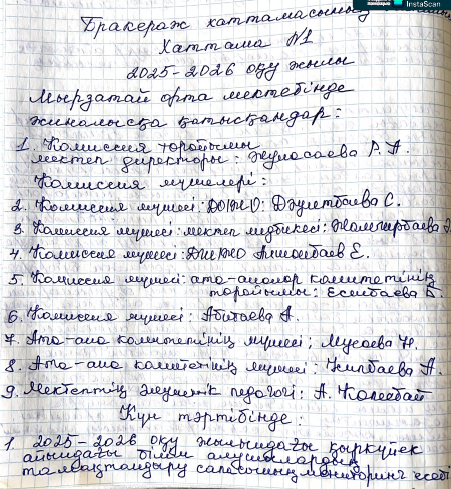 InstaScan
Бракераж хаттамасының
Хаттама №1
2025-2026 оқу жылы
Мырзатай орта мектебінде
жиналысқа қатысқандар:
1. Комиссия төрайымы
мектеп директоры: Жумасаева Р. А.
Комиссия мүшелері:
2. Комиссия мүшесі: ДОІЖО: Дәулетбаева С.
3. Комиссия мүшесі: мектеп медбикесі:
4. Комиссия мүшесі: Е.
5. Комиссия мүшесі: ата-аналар комитетінің
төрайымы: Есенбаева Б.
6. Комиссия мүшесі: Абитаева А.
7. Ата-ана комитетінің мүшесі; Мусаева Н.
8. Ата-ана комитетінің мүшесі: А.
9. Мектептің әлеуметтік педагогі: А. Қалыбай
Күн тәртібінде:
1. 2025-2026 оқу жылындағы қыркүйек
айындағы білім алушылардың
тамақтандыру сапасының мониторинг есебі